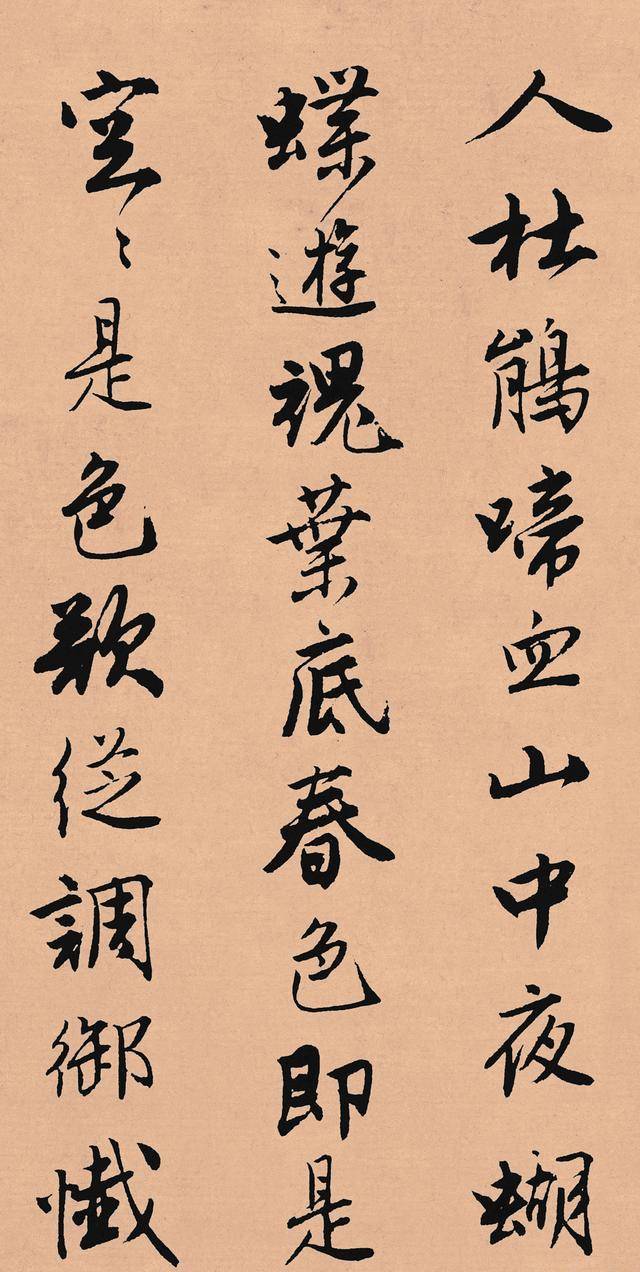 人杜鵑啼血山中夜蝴
蝶遊魂葉底春色即是
空〻是色欲從調御懺